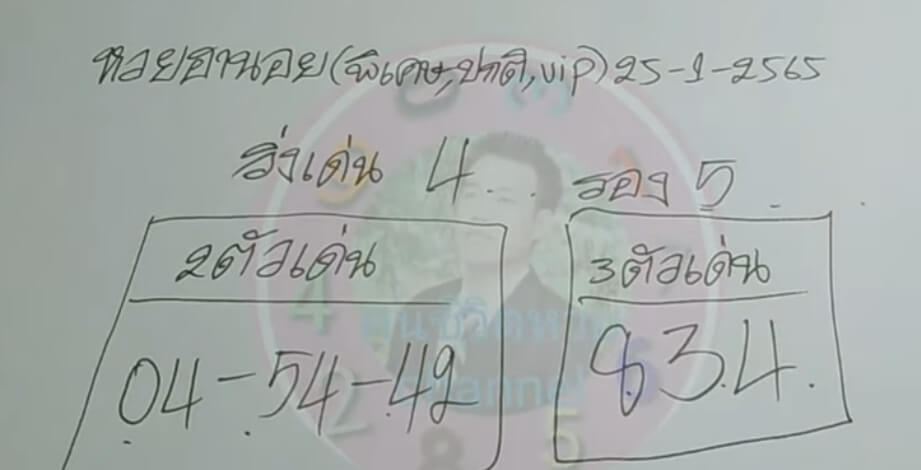 หวยฮานอย(พิเศษ,ปกติ,vip)25-1-2565
วิ่งเด่น 4 รอง 5
2ตัวเด่น
04-54-42
3ตัวเด่น
834
channel